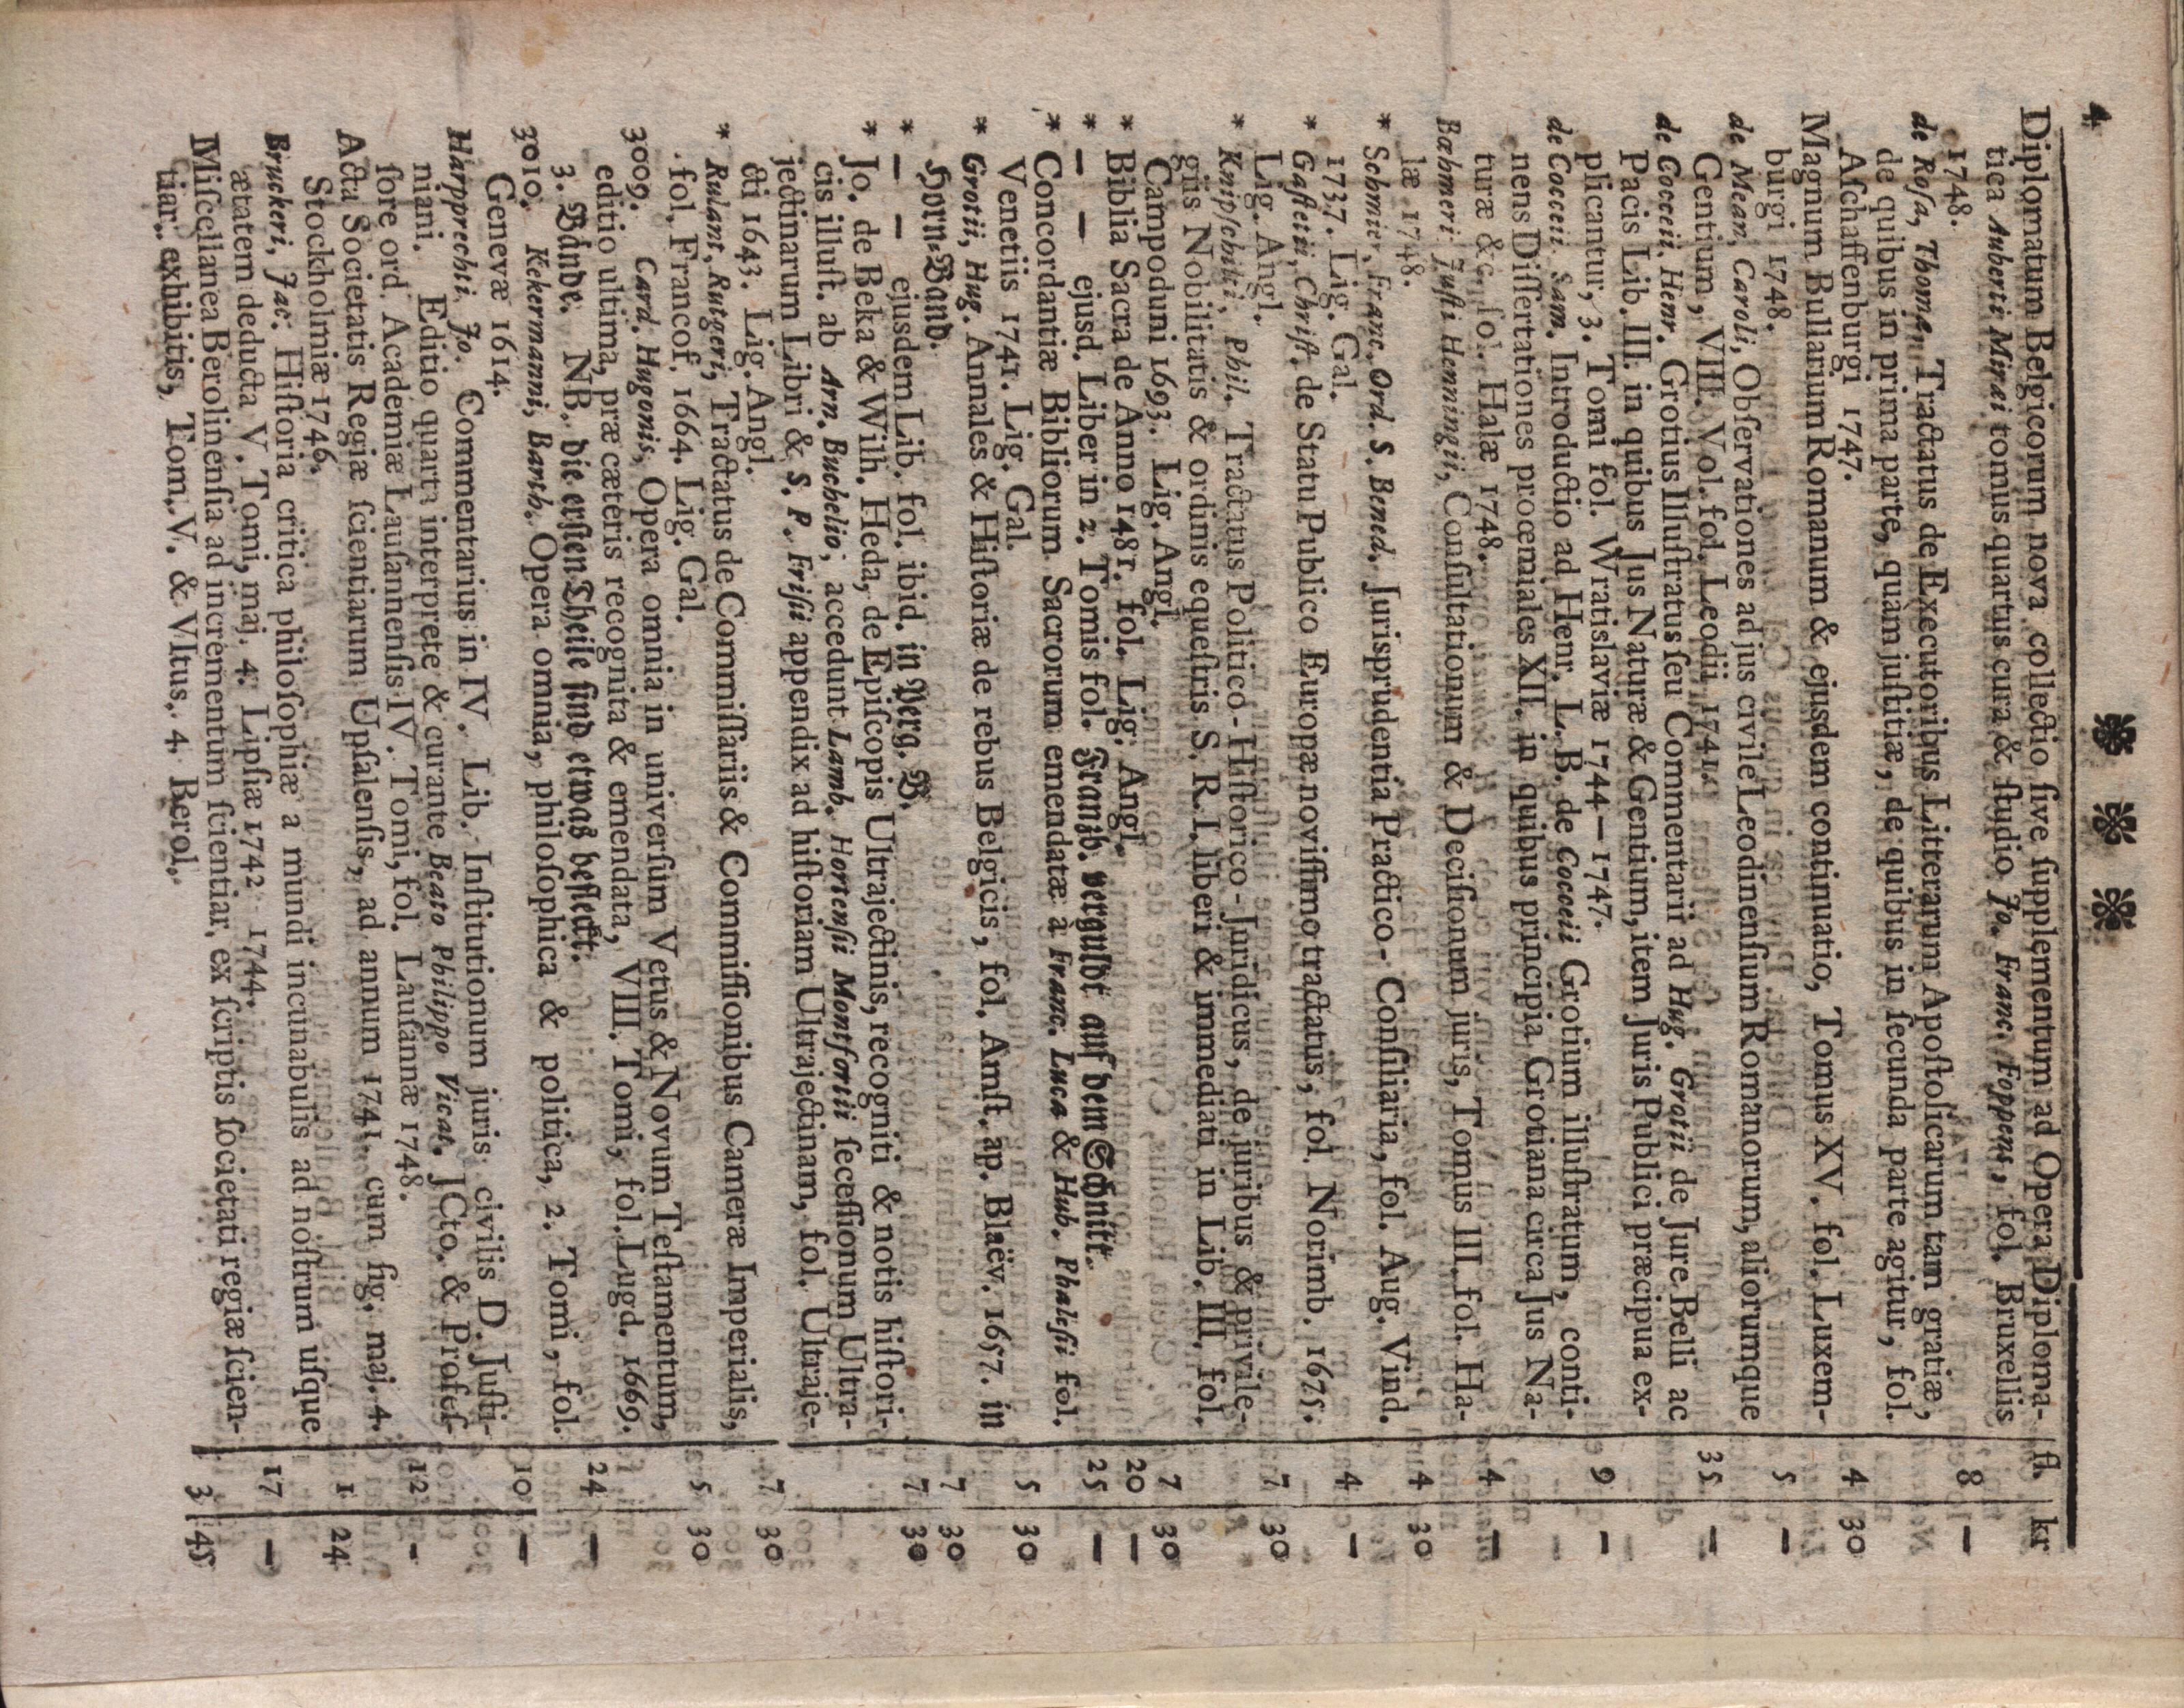 4
fl. kr
Diplomatum Belgicorum nova collectio ſive ſupplementum ad Opera Diploma-
tica Auberti Miræi tomus quartus cura & ſtudio Jo. Franc. Foppens, fol. Bruxellis
1748. 8 —
de Roſa, Thomæ, Tractatus de Executoribus Litterarum Apoſtolicarum tam gratiæ,
de quibus in prima parte, quàm juſtitiæ, de quibus in ſecunda parte agitur, fol.
Aſchaffenburgi 1747. 4 30
Magnum Bullarium Romanum & ejusdem continuatio, Tomus XV. fol. Luxem-
burgi 1748. 5 —
de Mean, Caroli, Obſervationes ad jus civile Leodinenſium Romanorum, aliorumque
Gentium, VIII. Vol. fol. Leodii 1741. 35 —
de Cocceii, Henr. Grotius Illuſtratus ſeu Commentarii ad Hug. Grotii de Jure Belli ac
Pacis Lib. III. in quibus Jus Naturæ & Gentium, item Juris Publici præcipua ex-
plicantur, 3. Tomi fol. Wratislaviæ 1744—1747. 9 —
de Cocceii Sam. Introductio ad Henr. L. B. de Cocceii Grotium illuſtratum, conti-
nens Diſſertationes procemiales XII. in quibus principia Grotiana circa Jus Na-
turæ &c. fol. Halæ 1748. 4 —
Bœhmeri Juſti Henningii, Conſultationum & Deciſionum juris, Tomus III. fol. Ha-
læ 1748. 4 30
* Schmier, Franc. Ord. S. Bened. Jurisprudentia Practico-Conſiliaria, fol. Aug. Vind.
1737. Lig. Gal. 4 —
* Gaſtelii, Chriſt. de Statu Publico Europæ noviſſimo tractatus, fol. Norimb. 1675.
Lig. Angl. 7 30
* Knipſchilti, Phil. Tractatus Politico-Hiſtorico-Juridicus, de juribus & privile-
giis Nobilitatis & ordinis equeſtris S. R. I. liberi & immediati in Lib. III. fol.
Campoduni 1693. Lig. Angl. 7 30
* Biblia Sacra de Anno 1481. fol. Lig. Angl. 20 —
* — — ejusd. Liber in 2. Tomis fol. Franzb. verguldt auf dem Schnitt. 25 —
* Concordantiæ Bibliorum Sacrorum emendatæ à Franc. Luca & Hub. Phaleſii fol.
Venetiis 1741. Lig. Gal. 5 30
* Grotii, Hug. Annales & Hiſtoriæ de rebus Belgicis, fol. Amſt. ap. Blaëv. 1657. in
Horn-Band. 7 30
* — — ejusdem Lib. fol. ibid. in Perg. B. 7 30
* Jo. de Beka & Wilh. Heda, de Epiſcopis Ultrajectinis, recogniti & notis hiſtori-
cis illuſt. ab Arn. Buchelio, accedunt Lamb. Hortenſii Montfortii ſeceſſionum Ultra-
jectinarum Libri & S. P. Friſii appendix ad hiſtoriam Ultrajectinam, fol. Ultraje-
cti 1643. Lig. Angl. 7 30
* Rulant, Rutgeri, Tractatus de Commiſſariis & Commiſſionibus Cameræ Imperialis,
fol. Francof. 1664. Lig. Gal. 5 30
3009. Card. Hugonis, Opera omnia in univerſum Vetus & Novum Teſtamentum,
editio ultima, præ cæteris recognita & emendata, VIII. Tomi, fol. Lugd. 1669.
3. Bände. NB. die erſten Theile ſind etwas befleckt. 24 —
3010. Kekermanni, Barth. Opera omnia, philoſophica & politica, 2. Tomi, fol.
Genevæ 1614. 10 —
Harpprechti, Jo. Commentarius in IV. Lib. Inſtitutionum juris civilis D. Juſti-
niani. Editio quarta interprete & curante Beato Philippo Vicat, JCto. & Profeſ-
ſore ord. Academiæ Lauſannenſis IV. Tomi, fol. Lauſannæ 1748. 12 -
Acta Societatis Regiæ ſcientiarum Upſalenſis, ad annum 1741. cum fig. maj. 4.
Stockholmiæ 1746. 1 24
Bruckeri, Jac. Hiſtoria critica philoſophiæ a mundi incunabulis ad noſtrum uſque
ætatem deducta V. Tomi, maj. 4. Lipſiæ 1742 1744. 17 —
Miſcellanea Berolinenſia ad incrementum ſcientiar. ex ſcriptis ſocietati regiæ ſcien-
tiar. exhibitis, Tom. V. & VItus. 4. Berol. 3 45